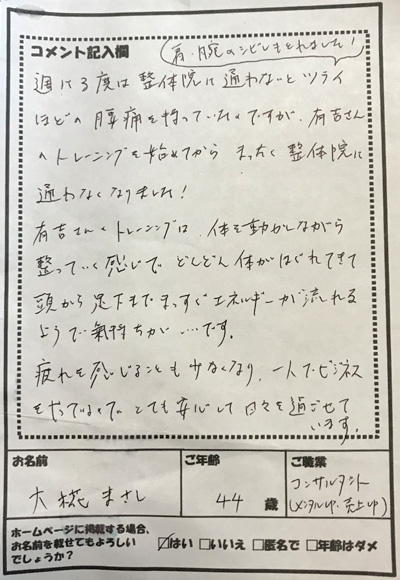 コメント記入欄
肩・腕のシビレもとれました!
週に3度は整体院に通わないとツライ
ほどの腰痛を持っていたのですが、有吉さん
のトレーニングを始めてから まったく整体院に
通わなくなりました!
有吉さんのトレーニングは、体を動かしながら
整っていく感じで どんどん体がほぐれてきて
頭から足下までまっすぐエネルギーが流れる
ようで氣持ちが…です。
疲れを感じることも少なくなり、一人でビジネス
をやっているので とても安心して日々を過ごせて
います。
お名前
大椛 まさし
ご年齢
44 歳
ご職業
コンサルタント
(メンタルup・売上up)
ホームページに掲載する場合、
お名前を載せてもよろしい
でしょうか?
☑はい □いいえ □匿名で □年齢はダメ